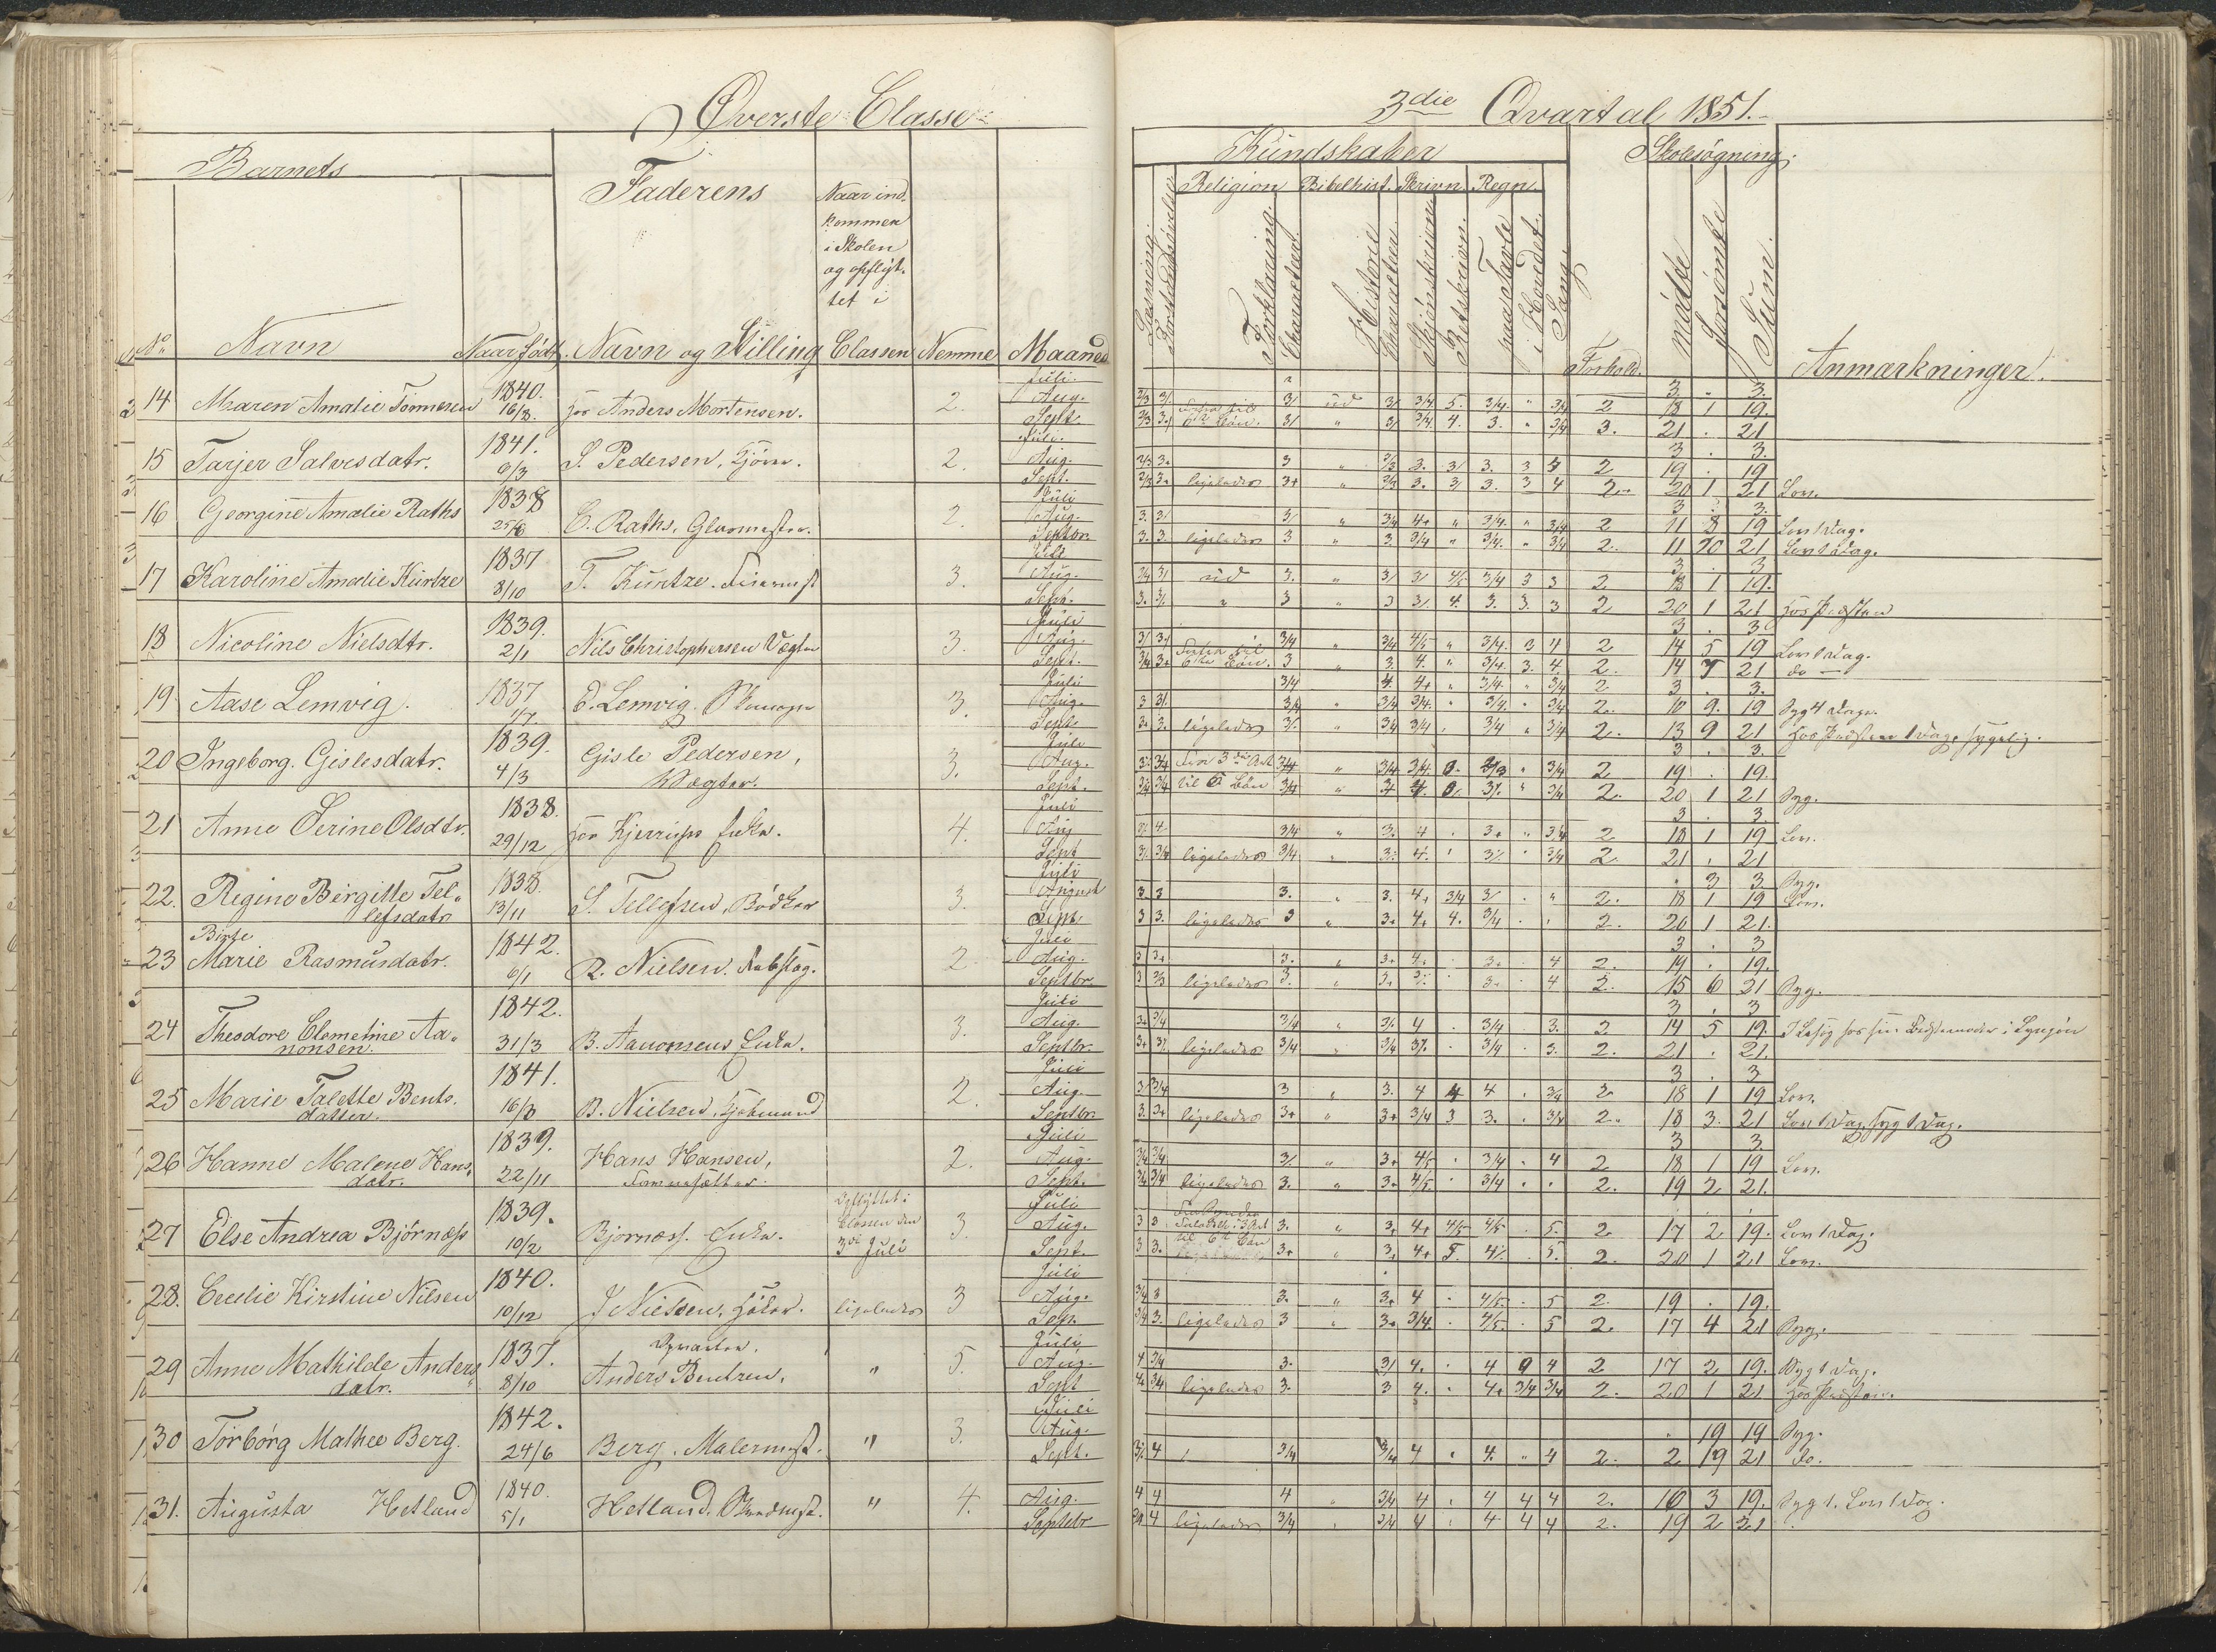 Øverste Classe
Barnets
Faderens
Naar ind-
kommen
i Skolen
og opflyt-
tet i
No Navn Naar født. Navn og Stilling Classen Nemme Maaned
14 Maren Amalie Tønnesen 1840. 16/8. hos Anders Mortensen. 2. Juli. Aug. Sept.
15 Tarjer Salvesdatr. 1841. 9/3 S. Pedersen, 2. Juli. Aug. Sept.
16 Georgine Amalie Raths 1838 C. Raths, Glarmester. 2. Juli Aug. Septbr.
17 Karoline Amalie Küntze 1837 8/10 T. Küntze. 3. Juli Aug. Sept.
18 Nicoline Nielsdtr. 1839. 2/1 Nils Christophersen Vægter 3. Juli Aug. Sept.
19 Aase Lemvig. 1837 E. Lemvig. 3. Juli Aug. Sept.
20 Ingeborg. Gislesdatr. 1839. 4/3 Gisle Pedersen, Vægter. 3. Juli Aug. Sept.
21 Anne Serine Olsdtr. 1838. 29/12 hos Enke. 4. Juli Aug Sept
22. Regine Birgitte Tel-
lefsdatr 1838. 13/11 S. Tellefsen, Bødker 3. Juli August Sept.
Birte
23 Marie Rasmusdatr. 1842. 6/1 R. Nielsen. 2. Juli Aug. Septbr.
24 Theodore Clementine Aa-
nonsen. 1842. 31/3 B. Aanonsens Enke. 3. Juli Aug. Septbr.
25 Marie Talette Bents-
datter. 1841. 16/8 B. Nielsen, Sjømand 2. Juli Aug. Septbr.
26 Hanne Malene Hans-
datr. 1839. 22/11 Hans Hansen, 2. Juli Aug. Sept.
27 Else Andrea Bjørness 1839. 10/2 Bjørness. Enke. Opflyttet i Classen den 3die Juli 3. Juli Aug. Sept.
28. Cecilie Kirstine Nilsen 1840. 10/12 J Nielsen, ligeledes 3 Juli Aug. Sep.
29 Anne Mathilde Anders
datr. 1837. 8/10 Anders Bentsen. " 5. Juli Aug. Sept
30 Torborg Mathee Berg. 1842. 24/6 Berg, Malermest. " 3. Juli Aug. Sept.
31. Augusta Hetland 1840. 5/1 Hetland, " 4. Aug. Septebr
3die Qvartal 1851.
Kundskaber Skolesøgning.
Religion Bibelhist. Skrivn. Regn.
Læsning. Forstandsøvelse Forklaring. Charakter. Historie Charakter. Skjønskrivn. Retskrivn. paa Tavle i Hovedet. Sang. Forhold. mødte forsømte Sum. Anmærkninger.
3. " 3.
2/3 3/. 3/ ud 3/ 3/4 5. 3/4. " 3/4 2 18 1 19.
2/3 3/ 6te Bøn. 3/ " 3/ 3/4 4. 3. " 3/4 3. 21 . 21
3 . 3.
2/3 3. 3 " 3. 3/ 3. 3 4 2 19 . 19
2/3 3. ligeledes 3+ " 2/3 3. 3/ 3. 3 4 2. 20 1 21 Lov.
3 . 3.
3. 3/ 3/ " 3/4 4+ " 3/4. " 3/4 2 11 8 19 Lov 1 Dag.
3. 3. ligeledes 3 " 3. 3/4 " 3/4. " 3/4 2. 11 10 21 Lov 1 Dag.
3 . 3
3/4 3/ ud 3. " 3/ 3/ 4/5 3/4 3 3 2 18 1 19.
3. 3/. " 3 " 3 3/. 4. 3. 3. 3 2 20 1 21 hos Præsten
3 . 3
3/ 3/ 3/4 " 3/4 4/5 " 3/4. 3 4 2 14 5 19 Lov 1 Dag.
3/4 3+ 6te Bøn. 3 " 3. 4. " 3/4. 3. 4. 2. 14 7 21 do —
3/4 4. 4+ " 3/4. " 3/4 2 3 . 3.
3 3/. 3/4 3/4. 3/4. " 3/4. " 3/4 2. 10 9. 19 Syg 4 Dage.
3. 3. ligeledes 3/. 3/4 3/4 . 3/4 " 3/4 2. 13 9 21 hos Præsten 1 Dag, sygelig.
3 . 3.
3. 3/4 Fra 3die Art 3/4 " 3/4 3/4 0. 2/3 " 3/4 2 19 . 19.
3/4 3/4 til 6 Bøn 3/4 " 3/4 4. 0. 3/. " 3/4 2. 20 1 21 Syg.
3 . 3.
3/. 4 3/4 " 3. 4 . 3+ " 3/4 2 18 1 19 Lov.
3/. 3/4 ligeledes 3/4 . 3. 4. . 3/. " 3/4 2. 21 . 21
. 3 3 Syg.
3 3 3. 3. 4+ 3/4 3/ . " 2. 18 1 19 Lov.
3 3. ligeledes 3 " 3+ 4+ 4. 3/4 . . 2. 20 1 21.
3 . 3
3 3+ 3. " 3+ 4. . 3. . 4 2. 19 . 19.
3 2/3 ligeledes 3. " 3+ 3. . 3. . 4 2. 15 6 21 Syg.
3 . 3
3+ 3/4 3/4 " 3/. 4 . 3/4 . 3. 2. 14 5 19. I hos sin Bedstemoder i
3+ 3/. ligeledes 3/4 " 3/4 3/. . 3/4 . 3. 2. 21 . 21.
3 . 3
3/ 3/4 3 " 3. 4 4 4 . 3/4 2 18 1 19 Lov.
3. 3+ ligeledes 3+ " 3+ 3/4 3 3. . 3/4 2. 18 3. 21 Lov 1 Dag, syg 1 Dag.
3 3.
3/4 3/4 3/. " 3+ 4/5 . 3/4 . 4 2 18 1 19 Lov.
3/4 3/4 ligeledes 3. " 3+ 4/5. . 3/4 . . 2. 19 2 21.
3 3 3. " 3+ 4+ 4/5 4/5 . 5. 2 17 2 19. Lov 1 Dag.
3 3. til 6te Bøn 3+ " 3. 4+ 5. 4/. . 5. 2. 20 1 21 Lov.
3/4 3 3. " 3+ 4 . 4/5. . 5 2. 19 . 19.
3/4 3. ligeledes 3 " 3. 3/4. . 4/5. . 5 2. 17 4 21 Syg.
4 3/4 3. 3/ 4. . 4 9 4 2 17 2 19. Syg 1 Dag.
4. 3/4 ligeledes 3. 3 4. . 4. 3/4 3/4 2. 20 1 21 hos Præsten.
. 19 19 Syg.
3/. 4 3/4 3/4 4 . 4. " 4 2. 2 19 21 do.
4 4 4 " 3/4 4 . 4 4 4 2. 16 3 19. Syg 1. Lov 1 Dag.
4 ligeledes 3/4 . 3/4 4 . 4 4 4 2. 19 2 21